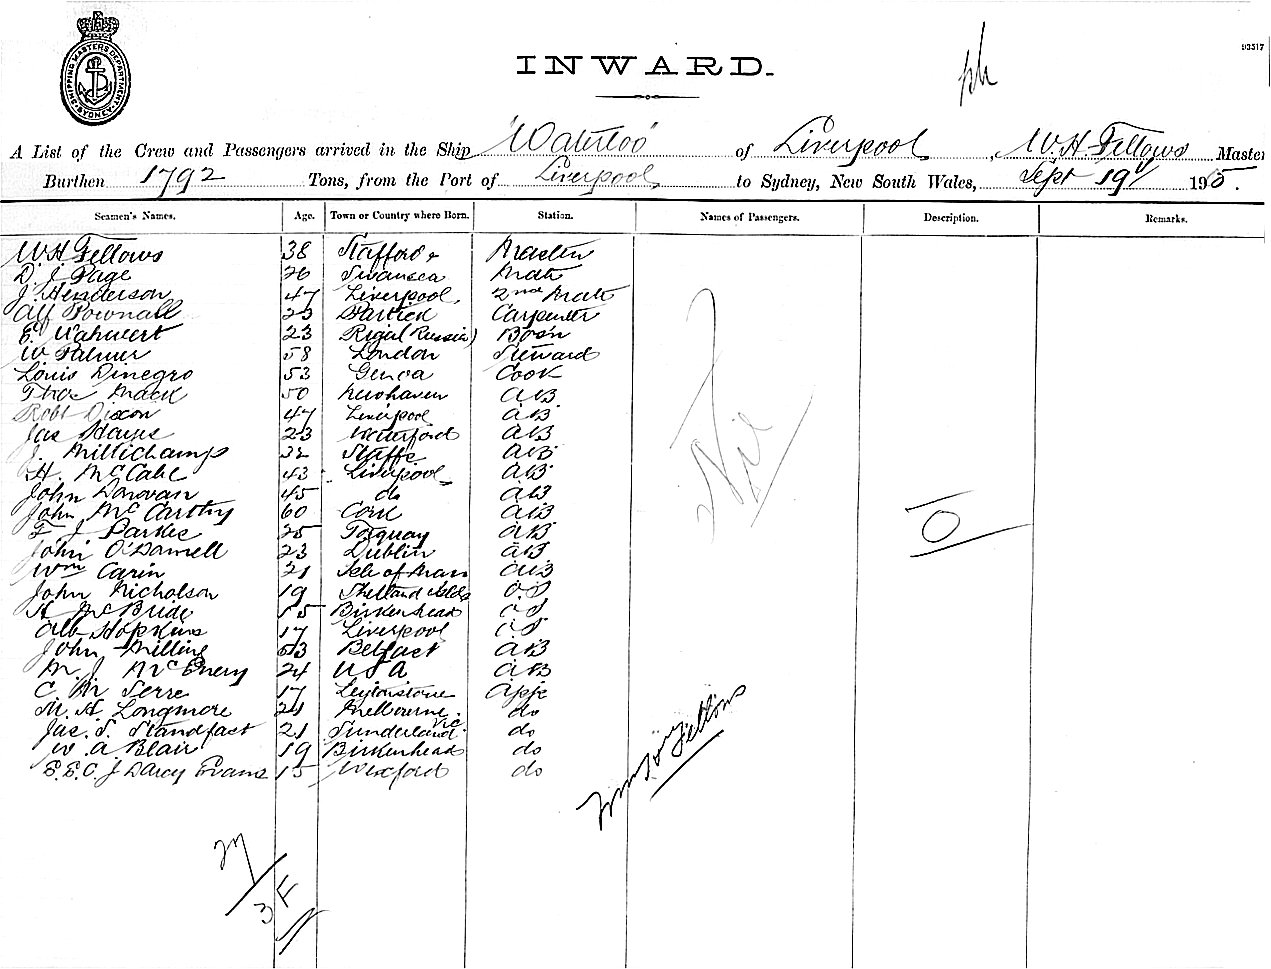 SHIPPING MASTERS DEPARTMENT SYDNEY
93517
INWARD.
A List of the Crew and Passengers arrived in the Ship "Waterloo" of Liverpool, W. H. Fellows Master
Burthen 1792 Tons, from the Port of Liverpool to Sydney, New South Wales, Sept 19th 19
Seamen's Names. Age. Town or Country where Born. Station. Names of Passengers. Description. Remarks.
W H Fellows 38 Stafford Master
D. J. Page 26 Swansea Mate
J. Henderson 47 Liverpool 2nd Mate
Alf Pownall 23 Carpenter
23 Riga (Russia) Bosn
W Palmer 58 London Steward
Louis Dinegro 53 Genoa Cook
Thos Mack 50 Newhaven AB
Robt Dixon 47 Liverpool AB
Jas Hayes 23 Waterford AB
J. Millichamp 32 Staffs AB
H. McCabe 43 Liverpool AB
John Donovan 45 do AB
John McCarthy 60 Cork AB
F J Parkes 25 Torquay AB
John O'Donnell 23 Dublin AB
Wm Carin 21 Isle of Man AB
John Nicholson 19 Shetland Islds O.S
H McBride 15 Birkenhead O S
Alb Hopkins 17 Liverpool O.S
John Milling 63 Belfast AB
M. J. McEnery 24 USA AB
C M Serre 17 Leytonstone App
M. H. Longmore 21 Melbourne Vic do
Jas. S. Standfast 21 Sunderland do
W. A Blair 19 Birkenhead do
E. E. C. J Darcy Evans 15 Wexford do
Nil
O
Fellows
27
3 F